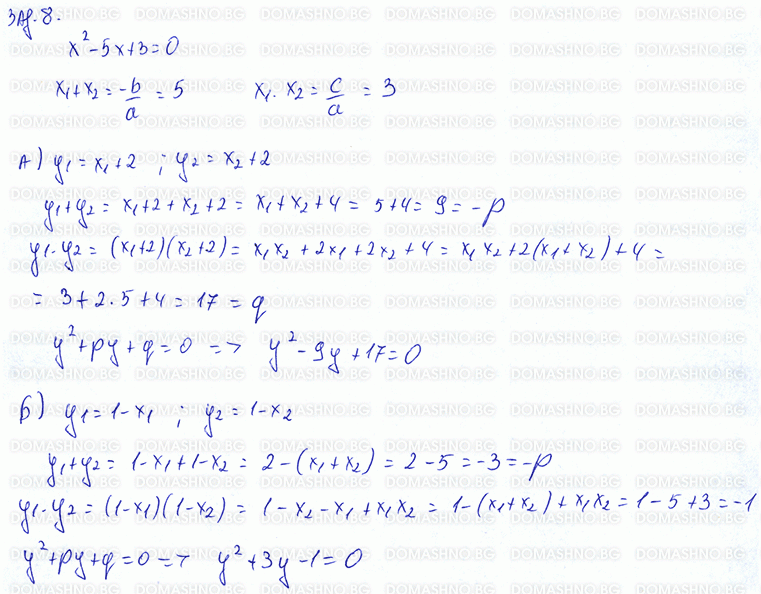 Зад. 8.
x²-5x+3=0
x₁+x₂ = -b/a = 5    x₁.x₂ = c/a = 3
А) y₁=x₁+2 ; y₂=x₂+2
y₁+y₂ = x₁+2+x₂+2 = x₁+x₂+4 = 5+4 = 9 = -p
y₁.y₂ = (x₁+2)(x₂+2) = x₁x₂+2x₁+2x₂+4 = x₁x₂+2(x₁+x₂)+4 =
= 3+2.5+4 = 17 = q
y²+py+q=0 => y²-9y+17=0
Б) y₁=1-x₁ ; y₂=1-x₂
y₁+y₂ = 1-x₁+1-x₂ = 2-(x₁+x₂) = 2-5 = -3 = -p
y₁.y₂ = (1-x₁)(1-x₂) = 1-x₂-x₁+x₁x₂ = 1-(x₁+x₂)+x₁x₂ = 1-5+3 = -1
y²+py+q=0 => y²+3y-1=0